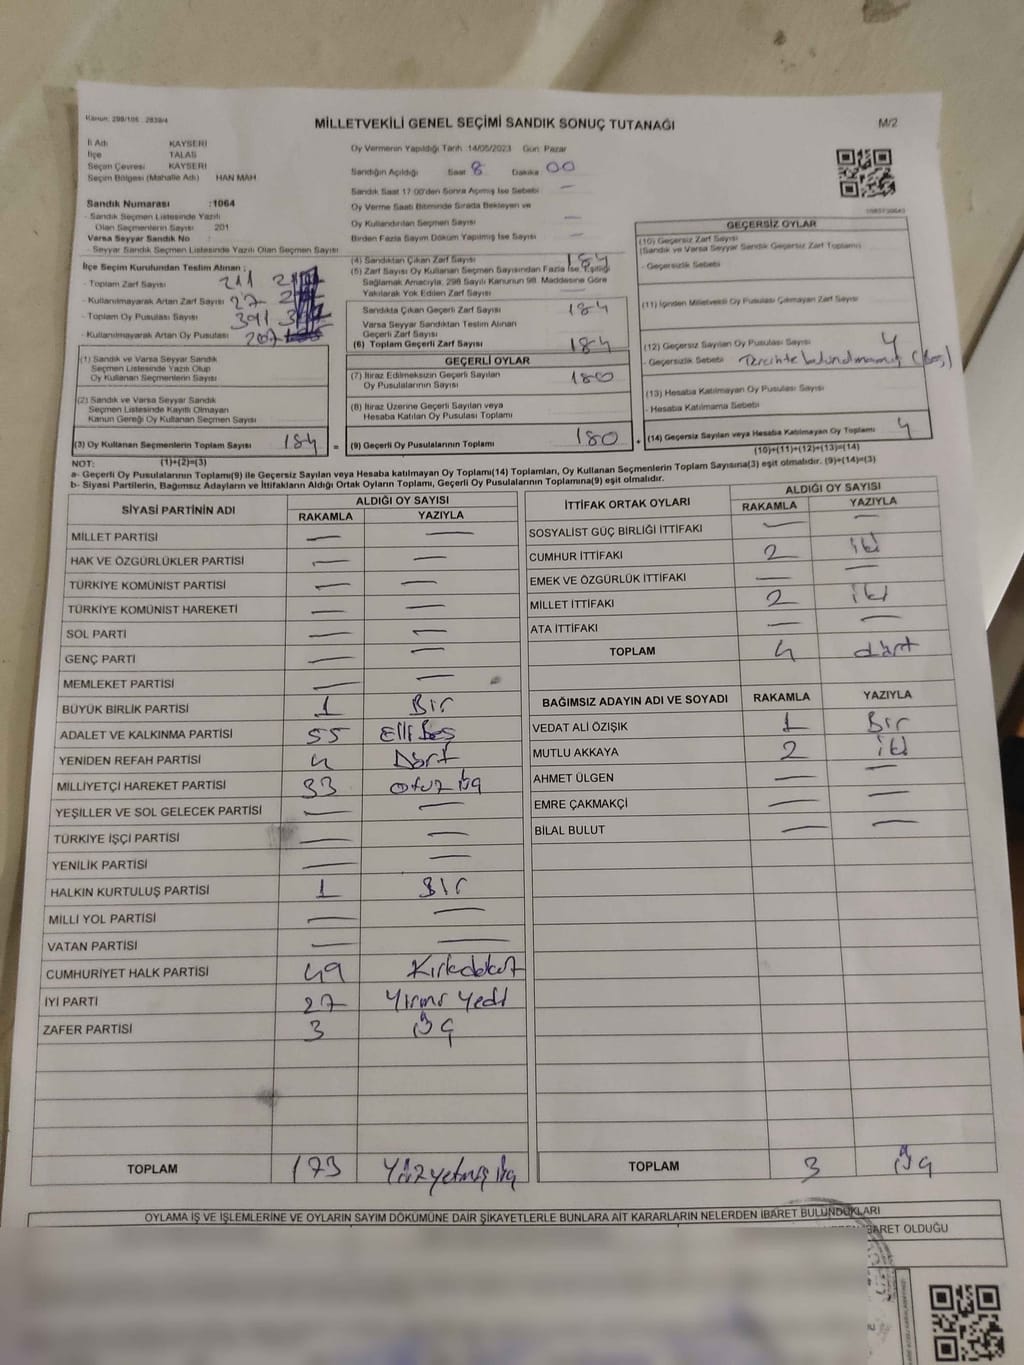 Kanun: 298/105 . 2839/4
MİLLETVEKİLİ GENEL SEÇİMİ SANDIK SONUÇ TUTANAĞI
M/2
İl Adı KAYSERİ
İlçe TALAS
Seçim Çevresi KAYSERİ
Seçim Bölgesi (Mahalle Adı) HAN MAH.
Sandık Numarası :1064
- Sandık Seçmen Listesinde Yazılı
Olan Seçmenlerin Sayısı 201
Varsa Seyyar Sandık No :
- Seyyar Sandık Seçmen Listesinde Yazılı Olan Seçmen Sayısı
Oy Vermenin Yapıldığı Tarih :14/05/2023 Gün: Pazar
Sandığın Açıldığı Saat 8 Dakika 00
Sandık Saat 17:00'den Sonra Açılmış İse Sebebi —
Oy Verme Saati Bitiminde Sırada Bekleyen ve
Oy Kullandırılan Seçmen Sayısı —
Birden Fazla Sayım Döküm Yapılmış İse Sayısı —
İlçe Seçim Kurulundan Teslim Alınan :
- Toplam Zarf Sayısı 211
- Kullanılmayarak Artan Zarf Sayısı 27
- Toplam Oy Pusulası Sayısı 391
- Kullanılmayarak Artan Oy Pusulası 207
(1) Sandık ve Varsa Seyyar Sandık
Seçmen Listesinde Yazılı Olup
Oy Kullanan Seçmenlerin Sayısı
(2) Sandık ve Varsa Seyyar Sandık
Seçmen Listesinde Kayıtlı Olmayan
Kanun Gereği Oy Kullanan Seçmen Sayısı
(3) Oy Kullanan Seçmenlerin Toplam Sayısı 184 =
(1)+(2)=(3)
(4) Sandıktan Çıkan Zarf Sayısı 184
(5) Zarf Sayısı Oy Kullanan Seçmen Sayısından Fazla İse, Eşitliği
Sağlamak Amacıyla; 298 Sayılı Kanunun 98. Maddesine Göre
Yakılarak Yok Edilen Zarf Sayısı —
Sandıkta Çıkan Geçerli Zarf Sayısı 184
Varsa Seyyar Sandıktan Teslim Alınan
Geçerli Zarf Sayısı
(6) Toplam Geçerli Zarf Sayısı 184
GEÇERLİ OYLAR
(7) İtiraz Edilmeksizin Geçerli Sayılan
Oy Pusulalarının Sayısı 180
(8) İtiraz Üzerine Geçerli Sayılan veya
Hesaba Katılan Oy Pusulası Toplamı
(9) Geçerli Oy Pusulalarının Toplamı 180 +
GEÇERSİZ OYLAR
(10) Geçersiz Zarf Sayısı
(Sandık ve Varsa Seyyar Sandık Geçersiz Zarf Toplamı)
- Geçersizlik Sebebi
(11) İçinden Milletvekili Oy Pusulası Çıkmayan Zarf Sayısı
(12) Geçersiz Sayılan Oy Pusulası Sayısı 4
- Geçersizlik Sebebi Tercihte bulunulmamış (Boş)
(13) Hesaba Katılmayan Oy Pusulası Sayısı
- Hesaba Katılmama Sebebi
(14) Geçersiz Sayılan veya Hesaba Katılmayan Oy Toplamı 4
(10)+(11)+(12)+(13)=(14)
NOT:
a- Geçerli Oy Pusulalarının Toplamı(9) ile Geçersiz Sayılan veya Hesaba katılmayan Oy Toplamı(14) Toplamları, Oy Kullanan Seçmenlerin Toplam Sayısına(3) eşit olmalıdır. (9)+(14)=(3)
b- Siyasi Partilerin, Bağımsız Adayların ve İttifakların Aldığı Ortak Oyların Toplamı, Geçerli Oy Pusulalarının Toplamına(9) eşit olmalıdır.
SİYASİ PARTİNİN ADI ALDIĞI OY SAYISI
RAKAMLA YAZIYLA
MİLLET PARTİSİ — —
HAK VE ÖZGÜRLÜKLER PARTİSİ — —
TÜRKİYE KOMÜNİST PARTİSİ — —
TÜRKİYE KOMÜNİST HAREKETİ — —
SOL PARTİ — —
GENÇ PARTİ — —
MEMLEKET PARTİSİ — —
BÜYÜK BİRLİK PARTİSİ 1 Bir
ADALET VE KALKINMA PARTİSİ 55 Elli Beş
YENİDEN REFAH PARTİSİ 4 Dört
MİLLİYETÇİ HAREKET PARTİSİ 33 otuz üç
YEŞİLLER VE SOL GELECEK PARTİSİ — —
TÜRKİYE İŞÇİ PARTİSİ — —
YENİLİK PARTİSİ — —
HALKIN KURTULUŞ PARTİSİ 1 Bir
MİLLİ YOL PARTİSİ — —
VATAN PARTİSİ — —
CUMHURİYET HALK PARTİSİ 49 Kırkdokuz
İYİ PARTİ 27 Yirmi Yedi
ZAFER PARTİSİ 3 üç
TOPLAM 173 Yüzyetmiş üç
İTTİFAK ORTAK OYLARI ALDIĞI OY SAYISI
RAKAMLA YAZIYLA
SOSYALİST GÜÇ BİRLİĞİ İTTİFAKI — —
CUMHUR İTTİFAKI 2 iki
EMEK VE ÖZGÜRLÜK İTTİFAKI — —
MİLLET İTTİFAKI 2 iki
ATA İTTİFAKI — —
TOPLAM 4 dört
BAĞIMSIZ ADAYIN ADI VE SOYADI RAKAMLA YAZIYLA
VEDAT ALİ ÖZIŞIK 1 Bir
MUTLU AKKAYA 2 iki
AHMET ÜLGEN — —
EMRE ÇAKMAKÇİ — —
BİLAL BULUT — —
TOPLAM 3 üç
OYLAMA İŞ VE İŞLEMLERİNE VE OYLARIN SAYIM DÖKÜMÜNE DAİR ŞİKAYETLERLE BUNLARA AİT KARARLARIN NELERDEN İBARET BULUNDUKLARI
İBARET OLDUĞU